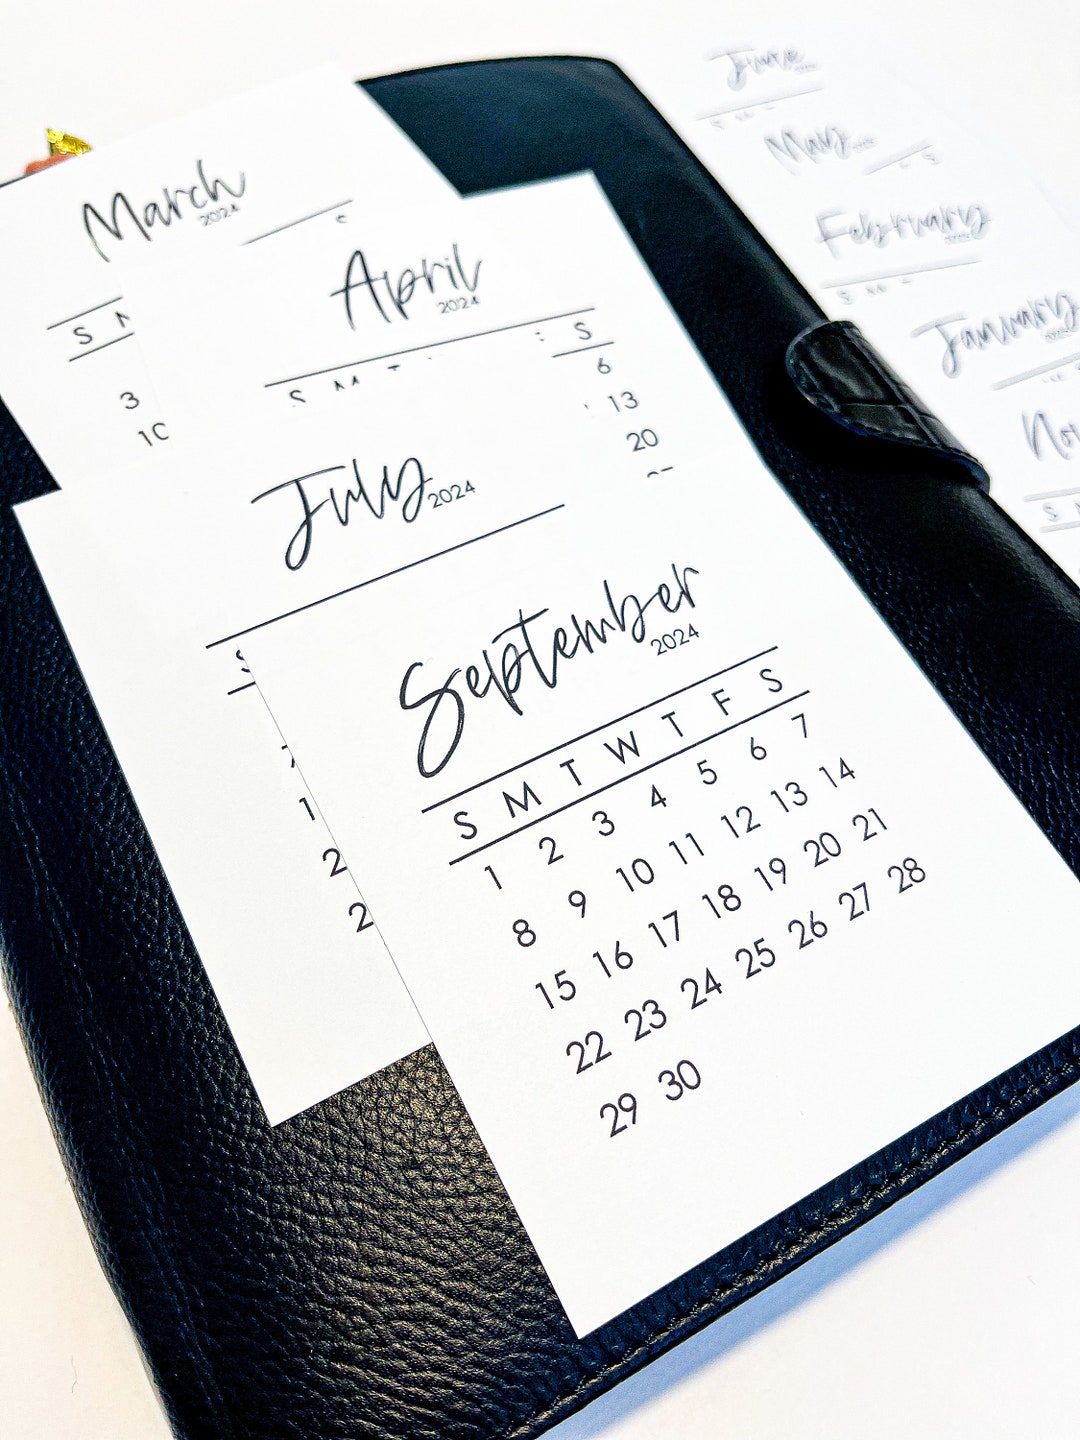 March
2024
S
3
10
April
2024
S M T S
6
13
20
July 2024
September
2024
S M T W T F S
1 2 3 4 5 6 7
8 9 10 11 12 13 14
15 16 17 18 19 20 21
22 23 24 25 26 27 28
29 30
June
May
S
February
S M
January
Nov
S